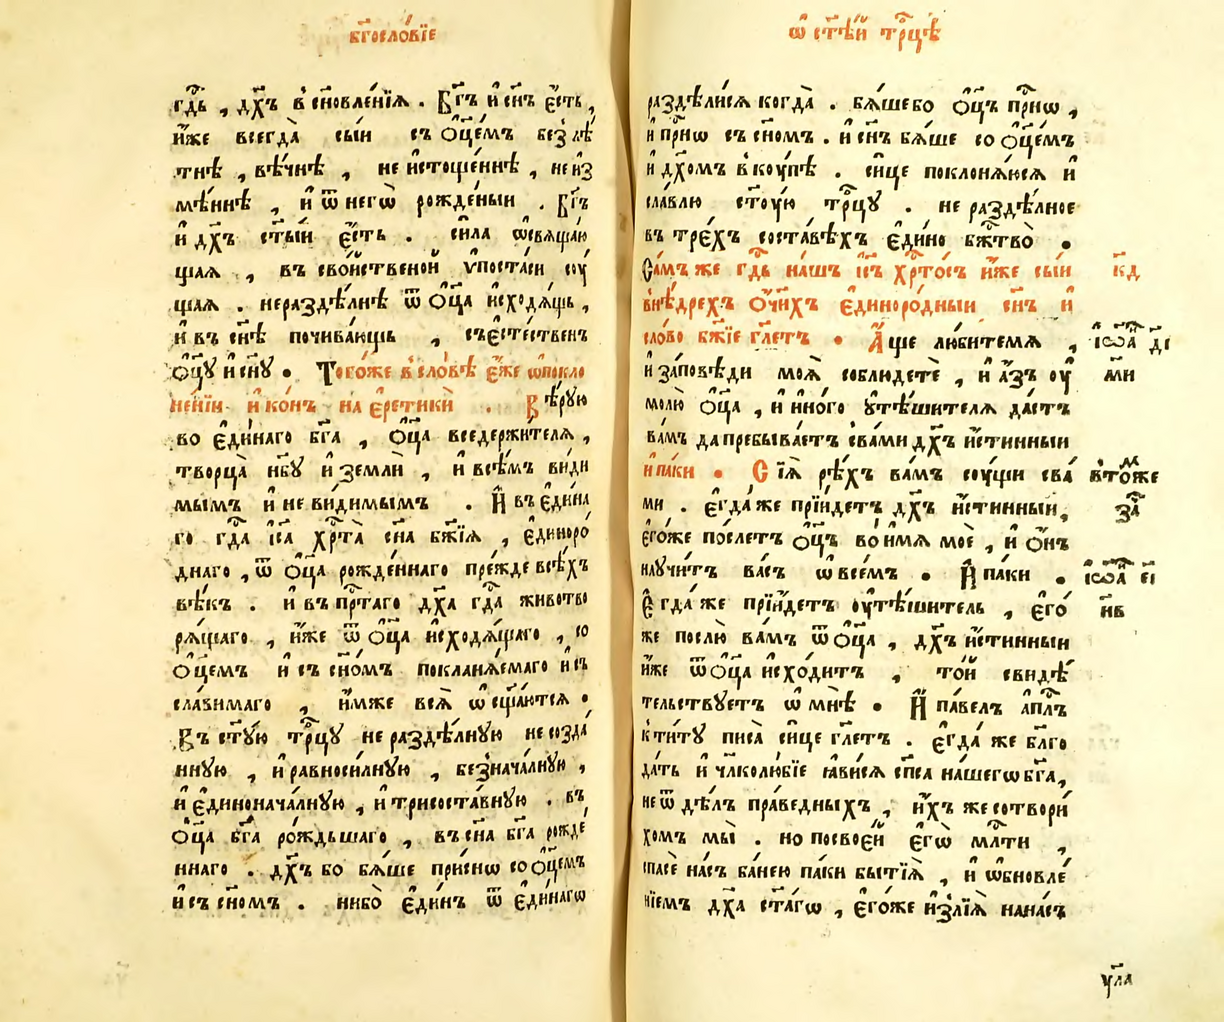 бг҃осло́вїе
гд҇ь , дх҃ъ в̾ сн҃овле́нїѧ . Бг҃ъ и҆ сн҃ъ є҆́сть ,
и҆́же всегда̀ сы́и съ ѻ҆ц҃е́мъ без̾ лѣ́
тнѣ , вѣ́чнѣ , не и҆стоще́ннѣ , не и҆з
мѣ́ннѣ , и҆ ѿ негѡ̀ рожде́ныи . Бг҃ъ
и҆ дх҃ъ ст҃ы́и є҆́сть . си́ла ѡ҆сщ҃а́ю
щаѧ , въ сво́йственой ѵ҆поста́си сꙋ́
щаѧ . нераздѣ́лнѣ ѿ ѻ҆ц҃а̀ и҆сходѧ́щь ,
и҆ въ сн҃ѣ почива́ющь , съє҆сте́ственъ
ѻ҆ц҃ꙋ и҆ сн҃ꙋ . Того́же в̾ сло́вѣ є҆́же ѡ҆ покло
не́нїи и҆ко́нъ на є҆ретикѝ . Вѣ́рꙋю
во є҆ди́наго бг҃а , ѻ҆ц҃а̀ вседержи́телѧ ,
творца̀ нб҃ꙋ и҆ землѝ , и҆ всѣ́мъ ви́ди
мымъ и҆ не ви́димымъ . И҆ въ є҆ди́на
го гд҇а і҆с҃а хрт҇а̀ сн҃а бж҃їѧ , є҆диноро́
днаго , ѿ ѻ҆ц҃а̀ рожде́ннаго пре́жде всѣ́хъ
вѣ́къ . и҆ въ прт҃аго дх҃а гд҇а живо́тво
рѧ́щаго , и҆́же ѿ ѻ҆ц҃а̀ и҆сходѧ́щаго , со
ѻ҆ц҃емъ и҆ съ сн҃омъ покланѧ́емаго и҆ съ
сла́вимаго , и҆́мже всѧ̀ ѡ҆сщ҃а́ютсѧ .
Въ ст҃ꙋ́ю трⷪ҇цꙋ не раздѣ́лнꙋю не созда́
ннꙋю , и҆ равноси́лнꙋю , безнача́лнꙋю ,
и҆ є҆динонача́лнꙋю , и҆ трисоста́внꙋю . въ
ѻ҆ц҃а̀ бг҃а ро́ждьшаго , въ сн҃а бг҃а рожде́
ннаго . дх҃ъ бо бѧ́ше при́снѡ со ѻ҆ц҃емъ
и҆ съ сн҃омъ . нибо̀ є҆ди́нъ ѿ є҆ди́нагѡ
ѡ҆ ст҃ѣ́й трⷪ҇цѣ
раздѣли́сѧ когда̀ . бѧ́ше бо ѻ҆ц҃ъ пр҇нѡ ,
и҆ пр҇нѡ съ сн҃омъ . и҆ сн҃ъ бѧ́ше со ѻ҆ц҃е́мъ
и҆ дх҃омъ в̾ кꙋ́пѣ . си́це поклонѧ́юсѧ и҆
сла́влю ст҃ꙋ́ю трⷪ҇цꙋ . не раздѣ́лное
въ тре́хъ соста́вѣхъ є҆ди́но бж҇тво̀ .
Са́мъ же гд҇ь на́шъ і҆с҃ъ хрт҇о́съ и҆́же сы́и
кд
в̾ нѣ́дрехъ ѻ҆́ч҃ихъ є҆диноро́дныи сн҃ъ и҆
сло́во бж҃їе гл҃етъ . А҆́ще лю́битемѧ ,
і҆ѡа҇ ді
и҆ за́повѣди моѧ̀ соблюдетѐ , и҆ а҆́зъ оу҆
м҃и
молю̀ ѻ҆ц҃а̀ , и҆ и҆но́го ᲂу҆тѣ́шителѧ да́стъ
ва́мъ да пребыва́етъ сва́ми дх҃ъ и҆́стинныи
и҆ па́ки . Сїѧ̀ рѣ́хъ ва́мъ сꙋ́щи сва́
в̾ то́мже
ми . є҆гда́же прїи́детъ дх҃ъ и҆́стинныи ,
за҇
є҆го́же по́слетъ ѻ҆ц҃ъ во и҆́мѧ моѐ , и҆ ѻ҆́нъ
наꙋчи́тъ ва́съ ѡ҆ все́мъ . И҆ па́ки .
і҆ѡа҇ еі
Є҆гда́же прїи́детъ оу҆тѣ́шитель , є҆го́
н҃в
же послю̀ ва́мъ ѿ ѻ҆ц҃а̀ , дх҃ъ и҆́стинныи
и҆́же ѿ ѻ҆ц҃а̀ и҆схо́дитъ , то́й свидѣ́
тельствꙋетъ ѡ҆ мнѣ̀ . И҆ па́велъ а҆пⷭ҇лъ
к̾ ти́тꙋ писа̀ си́це гл҃етъ . є҆гда́ же бл҃го
да́ть и҆ чл҃колю́бїе ꙗ҆ви́сѧ сп҃са на́шегѡ бг҃а ,
не ѿ дѣ́лъ пра́ведныхъ , и҆́хъ же сотвори́
хомъ мы̀ . но посвое́й є҆гѡ̀ мл҇ти ,
спасѐ на́съ ба́нею па́ки бытїѧ̀ , и҆ ѡ҆бновле́
нїемъ дх҃а ст҃а́гѡ , є҆го́же и҆злїѧ̀ нана́съ